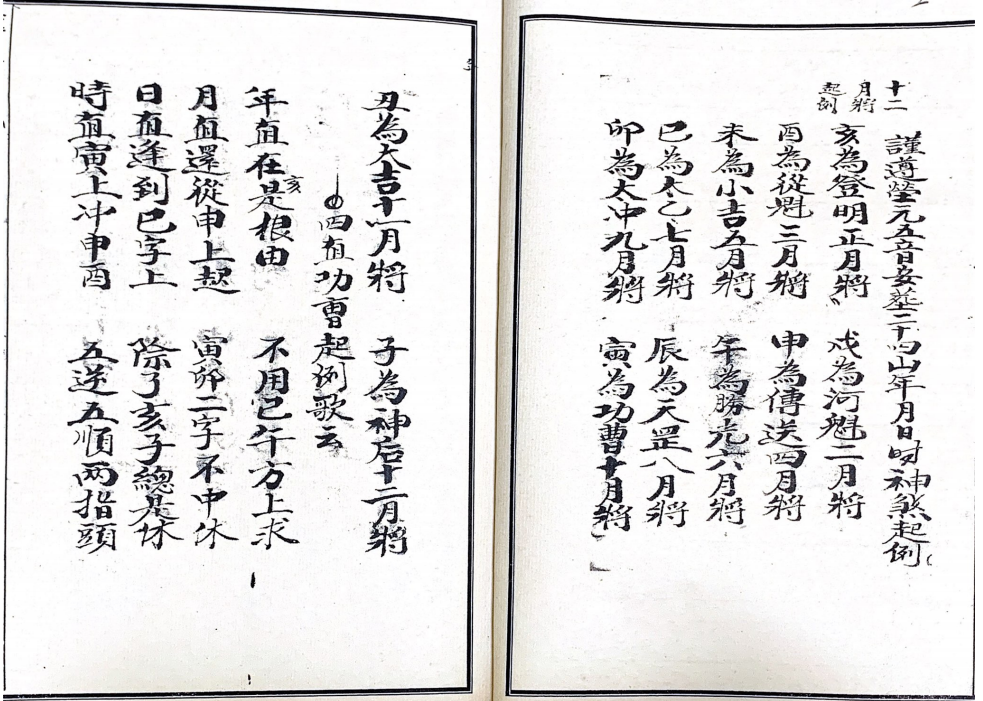 謹遵塋元五音安塟二十四山年月日时神煞起例
十二
月將
起例
亥為登明正月將 戌為河魁二月將
酉為從魁三月將 申為傳送四月將
未為小吉五月將 午為勝光六月將
巳為太乙七月將 辰為天罡八月將
卯為太冲九月將 寅為功曹十月將
丑為大吉十一月將 子為神后十二月將
四直功曹起例歌云
年直在亥是根由 不用巳午方上求
月直還從申上起 寅卯二字不中休
日直逢到巳字上 除了亥子總是休
時直寅上冲申酉 五逆五順両指頭